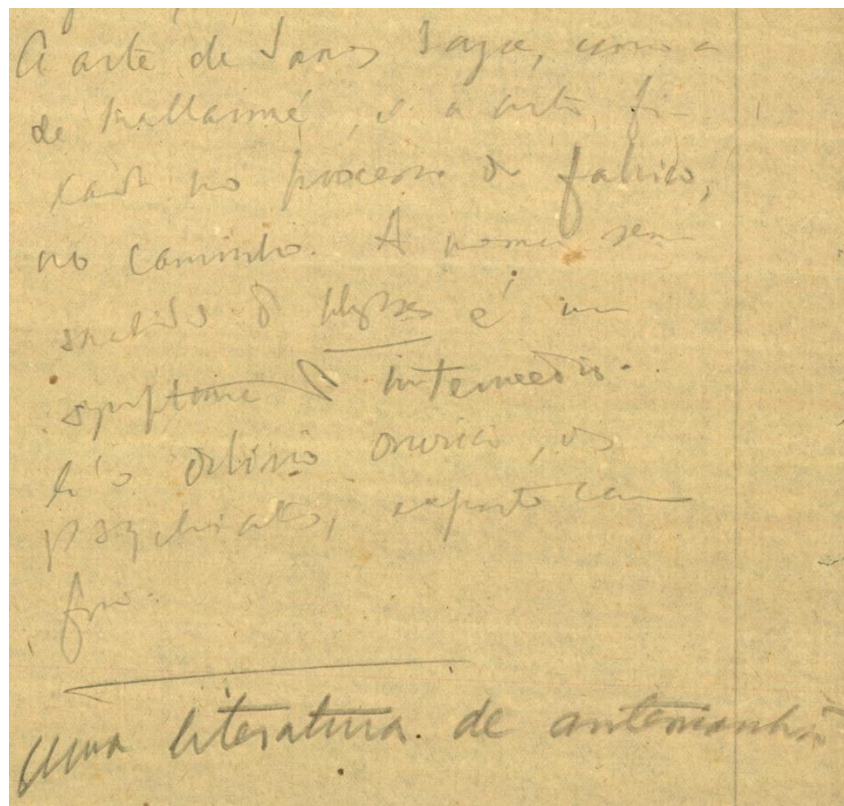 A arte de James Joyce, como a
de Mallarmé, é a arte fi-
xada no processo de fabrico,
no caminho. A mesma sen-
sualidade de Ulysses é um
symptoma de intermedio.
É o delirio onirico, dos
psychiatras, exposto como
fim.
Uma literatura de antemanhã